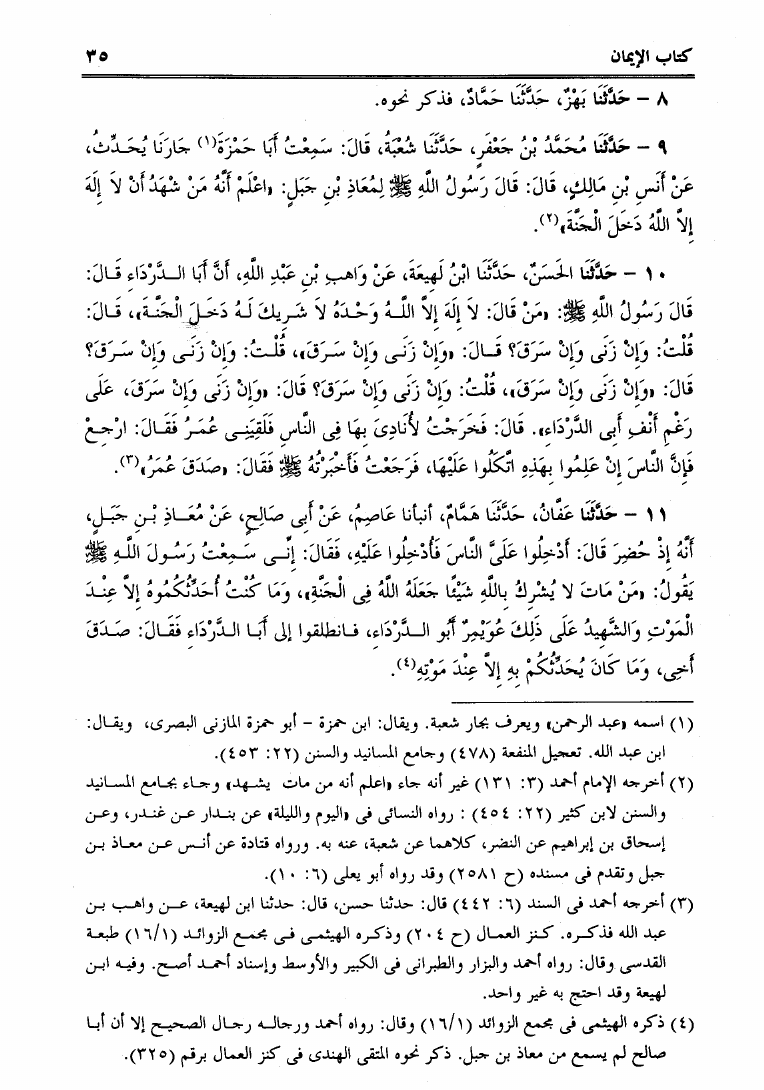 كتاب الإيمان ٣٥
٨ - حَدَّثَنَا بَهْزٌ، حَدَّثَنَا حَمَّادٌ، فذكر نحوه.
٩ - حَدَّثَنَا مُحَمَّدُ بْنُ جَعْفَرٍ، حَدَّثَنَا شُعْبَةُ، قَالَ: سَمِعْتُ أَبَا حَمْزَةَ(١) جَارَنَا يُحَدِّثُ،
عَنْ أَنَسِ بْنِ مَالِكٍ، قَالَ: قَالَ رَسُولُ اللَّهِ ﷺ لِمُعَاذِ بْنِ جَبَلٍ: «اعْلَمْ أَنَّهُ مَنْ شَهِدَ أَنْ لاَ إِلَهَ
إِلاَّ اللَّهُ دَخَلَ الْجَنَّةَ»(٢).
١٠ - حَدَّثَنَا الحَسَنُ، حَدَّثَنَا ابْنُ لَهِيعَةَ، عَنْ وَاهِبِ بْنِ عَبْدِ اللَّهِ، أَنَّ أَبَا الـدَّرْدَاءِ قَـالَ:
قَالَ رَسُولُ اللَّهِ ﷺ: «مَنْ قَالَ: لاَ إِلَهَ إِلاَّ اللَّـهُ وَحْـدَهُ لاَ شَـرِيكَ لَـهُ دَخَـلَ الْجَنَّـةَ»، قَـالَ:
قُلْتُ: وَإِنْ زَنَى وَإِنْ سَرَقَ؟ قَـالَ: «وَإِنْ زَنَـى وَإِنْ سَـرَقَ»، قُلْـتُ: وَإِنْ زَنَـى وَإِنْ سَـرَقَ؟
قَالَ: «وَإِنْ زَنَى وَإِنْ سَرَقَ»، قُلْتُ: وَإِنْ زَنَى وَإِنْ سَرَقَ؟ قَالَ: «وَإِنْ زَنَى وَإِنْ سَرَقَ، عَلَى
رَغْمِ أَنْفِ أَبِى الدَّرْدَاءِ». قَالَ: فَخَرَجْتُ لأُنَادِىَ بِهَا فِى النَّاسِ فَلَقِيَنِـى عُمَـرُ فَقَـالَ: ارْجِـعْ
فَإِنَّ النَّاسَ إِنْ عَلِمُوا بِهَذِهِ اتَّكَلُوا عَلَيْهَا، فَرَجَعْتُ فَأَخْبَرْتُهُ ﷺ فَقَالَ: «صَدَقَ عُمَرُ»(٣).
١١ - حَدَّثَنَا عَفَّانُ، حَدَّثَنَا هَمَّامٌ، أنبأنا عَاصِمٌ، عَنْ أَبِى صَالِحٍ، عَنْ مُعَـاذِ بْـنِ جَبَـلٍ،
أَنَّهُ إِذْ حُضِرَ قَالَ: أَدْخِلُوا عَلَىَّ النَّاسَ فَأُدْخِلُوا عَلَيْهِ، فَقَالَ: إِنِّـى سَـمِعْتُ رَسُـولَ اللَّـهِ ﷺ
يَقُولُ: «مَنْ مَاتَ لا يُشْرِكُ بِاللَّهِ شَيْئًا جَعَلَهُ اللَّهُ فِى الْجَنَّةِ»، وَمَا كُنْتُ أُحَدِّثُكُمُوهُ إِلاَّ عِنْـدَ
الْمَوْتِ وَالشَّهِيدُ عَلَى ذَلِكَ عُوَيْمِرٌ أَبُو الـدَّرْدَاءِ، فـانطلقوا إلى أَبَـا الـدَّرْدَاءِ فَقَـالَ: صَـدَقَ
أَخِى، وَمَا كَانَ يُحَدِّثُكُمْ بِهِ إِلاَّ عِنْدَ مَوْتِهِ(٤).
(١) اسمه «عبد الرحمن» ويعرف بجار شعبة. ويقال: ابن حمزة - أبو حمزة المازنى البصرى، ويقـال:
ابن عبد الله. تعجيل المنفعة (٤٧٨) وجامع المسانيد والسنن (٢٢: ٤٥٣).
(٢) أخرجه الإمام أحمد (٣: ١٣١) غير أنه جاء «اعلم أنه من مات يشـهد» وجـاء بجـامع المسـانيد
والسنن لابن كثير (٢٢: ٤٥٤) : رواه النسائى فى «اليوم والليلة» عن بنـدار عـن غنـدر، وعـن
إسحاق بن إبراهيم عن النضر، كلاهمـا عن شعبة، عنه به. ورواه قتادة عن أنـس عـن معـاذ بـن
جبل وتقدم فى مسنده (ح ٢٥٨١) وقد رواه أبو يعلى (٦: ١٠).
(٣) أخرجه أحمد فى السند (٦: ٤٤٢) قال: حدثنا حسن، قال: حدثنا ابن لهيعة، عـن واهـب بـن
عبد الله فذكـره. كـنز العمـال (ح ٢٠٤) وذكـره الهيثمـى فـى مجمـع الزوائـد (١٦/١) طبعـة
القدسى وقال: رواه أحمد والبزار والطبرانى فى الكبير والأوسط وإسناد أحمـد أصـح. وفيـه ابـن
لهيعة وقد احتج به غير واحد.
(٤) ذكره الهيثمى فى مجمع الزوائد (١٦/١) وقال: رواه أحمد ورجالـه رجـال الصحيـح إلا أن أبـا
صالح لم يسمع من معاذ بن جبل. ذكر نحوه المتقى الهندى فى كنز العمال برقم (٣٢٥).